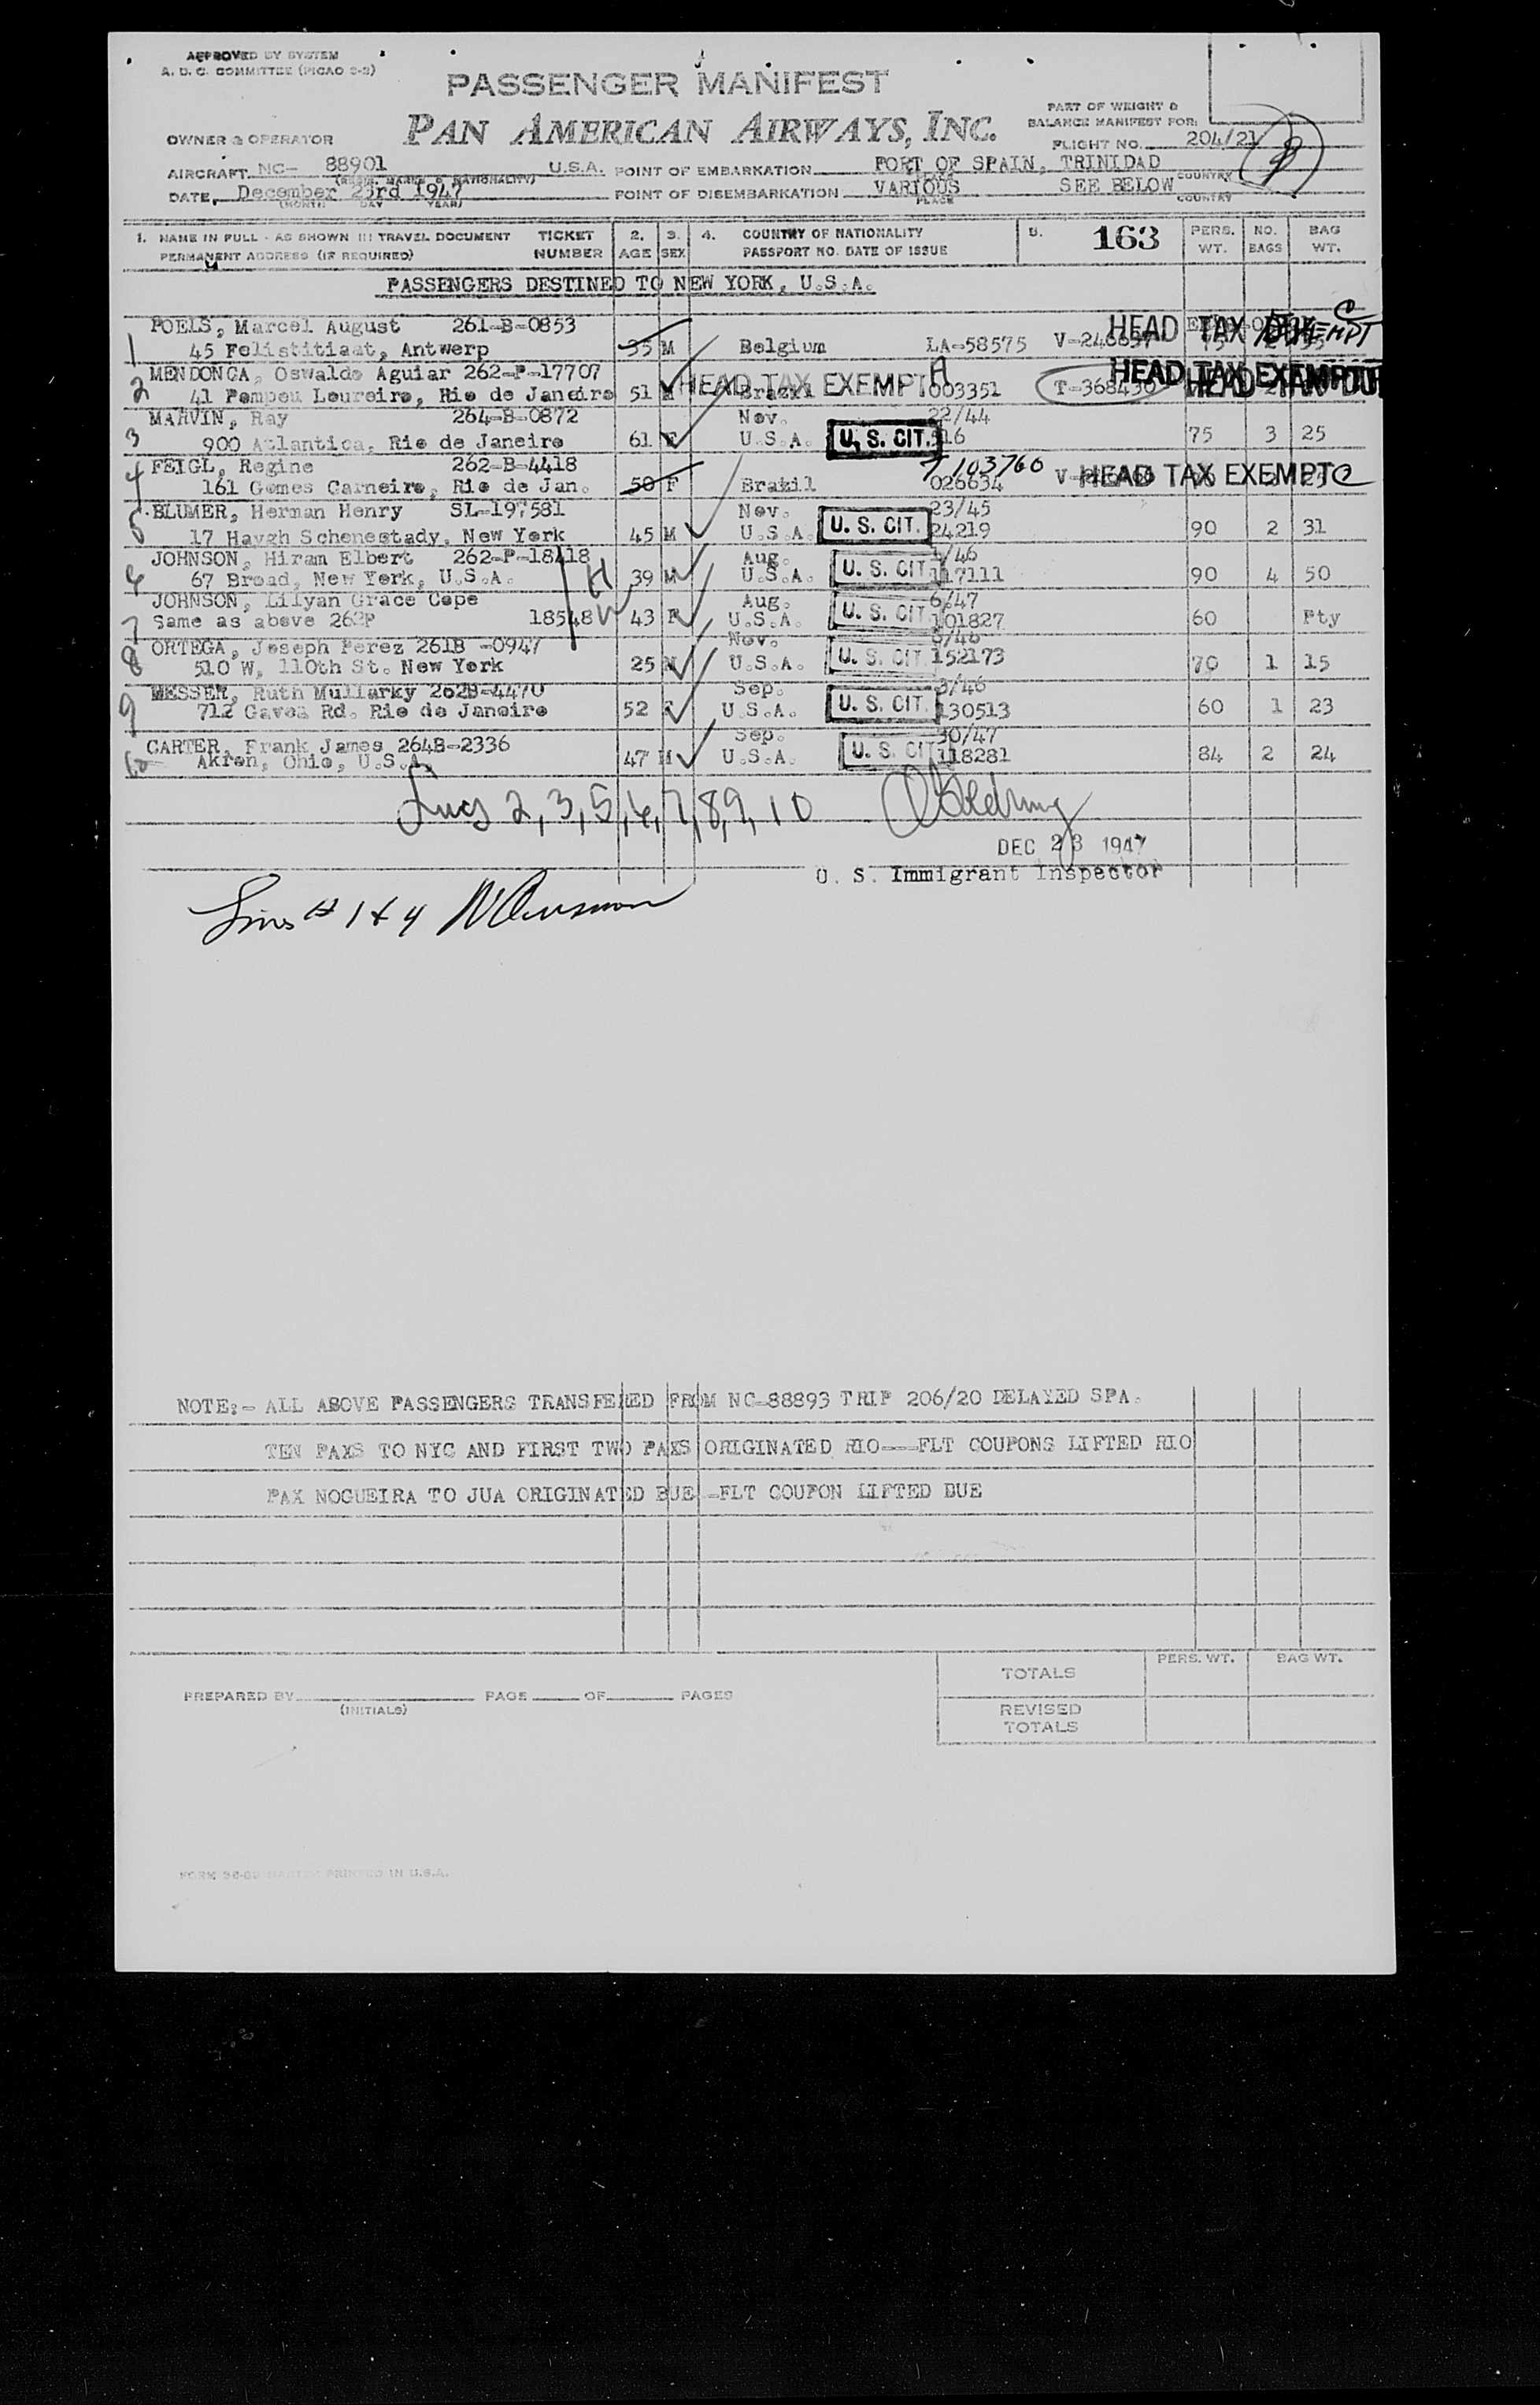 APPROVED BY SYSTEM
A. D. C. COMMITTEE (PICAO 2-2)
PASSENGER MANIFEST
PAN AMERICAN AIRWAYS, INC.
PART OF WEIGHT &
BALANCE MANIFEST FOR:
FLIGHT NO. 204/21
OWNER & OPERATOR
AIRCRAFT NC- 88901 U.S.A. POINT OF EMBARKATION PORT OF SPAIN, TRINIDAD
PLACE COUNTRY
DATE, December 23rd 1947 POINT OF DISEMBARKATION VARIOUS SEE BELOW
(MONTH DAY YEAR) PLACE COUNTRY
1. NAME IN FULL - AS SHOWN IN TRAVEL DOCUMENT TICKET 2. 3. 4. COUNTRY OF NATIONALITY 5. 163 PERS. NO. BAG
PERMANENT ADDRESS (IF REQUIRED) NUMBER AGE SEX PASSPORT NO. DATE OF ISSUE WT. BAGS WT.
PASSENGERS DESTINED TO NEW YORK, U.S.A.
1 POELS, Marcel August 261-B-0853 HEAD TAX EXEMPT
45 Felistitiaat, Antwerp 35 M Belgium LA-58575
2 MENDONCA, Oswaldo Aguiar 262-P-17707 HEAD TAX EXEMPT
41 Pompeu Loureiro, Rio de Janeiro 51 M HEAD TAX EXEMPT Brazil 003351 T-368430
3 MARVIN, Ray 264-B-0872 Nov. 22/44
900 Atlantica, Rio de Janeiro 61 F U.S.A. U. S. CIT. 75 3 25
4 FEIGL, Regine 262-B-4418 T 103760
161 Gomes Carneiro, Rio de Jan. 50 F Brazil 026634 HEAD TAX EXEMPT C
5 BLUMER, Herman Henry SL-197581 Nov. 23/45
17 Havgh Schenestady, New York 45 M U.S.A. U. S. CIT. 24219 90 2 31
6 JOHNSON, Hiram Elbert 262-P-18418 H Aug. /46
67 Broad, New York, U.S.A. 39 M U.S.A. U. S. CIT 117111 90 4 50
7 JOHNSON, Lilyan Grace Cope Aug. 6/47
Same as above 262P 18548 W 43 F U.S.A. U. S. CIT 101827 60 Pty
8 ORTEGA, Joseph Perez 261B -0947 Nov. /46
510 W, 110th St. New York 25 M U.S.A. U. S. CIT. 152173 70 1 15
9 MESSER, Ruth Mullarky 262B-4470 Sep. 3/46
712 Gavea Rd. Rio de Janeiro 52 U.S.A. U. S. CIT. 130513 60 1 23
10 CARTER, Frank James 264B-2336 Sep. 30/47
Akron, Ohio, U.S.A. 47 M U.S.A. U. S. CIT 118281 84 2 24
2, 3, 5, 6, 7, 8, 9, 10
DEC 23 1947
U. S. Immigrant Inspector
Lines # 1 & 4
NOTE:- ALL ABOVE PASSENGERS TRANSFERED FROM NC-88893 TRIP 206/20 DELAYED SPA.
TEN PAXS TO NYC AND FIRST TWO PAXS ORIGINATED RIO---FLT COUPONS LIFTED RIO
PAX NOGUEIRA TO JUA ORIGINATED BUE -FLT COUPON LIFTED BUE
TOTALS PERS. WT. BAG WT.
PREPARED BY PAGE OF PAGES
(INITIALS)
REVISED
TOTALS
PRINTED IN U.S.A.